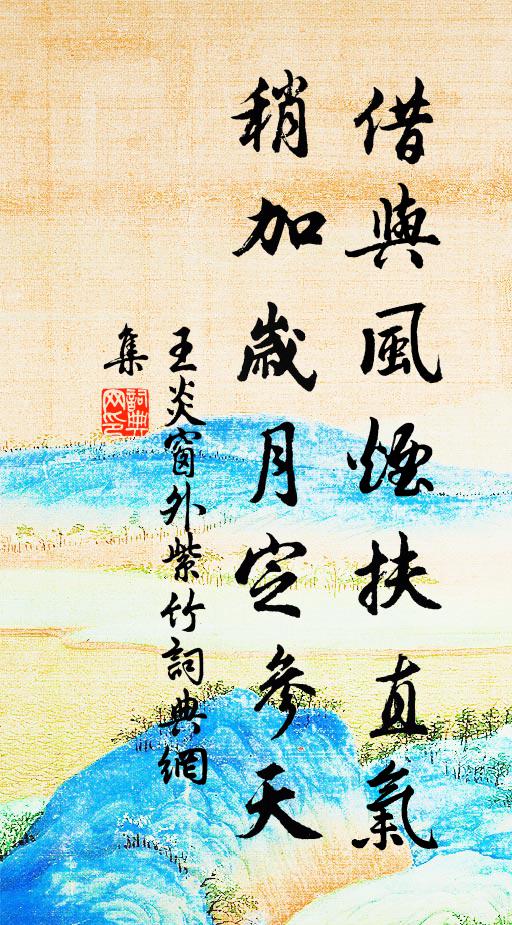 借與風煙扶直氣
稍加歲月定參天
王炎窗外紫竹詞典網
集
詞典
网印